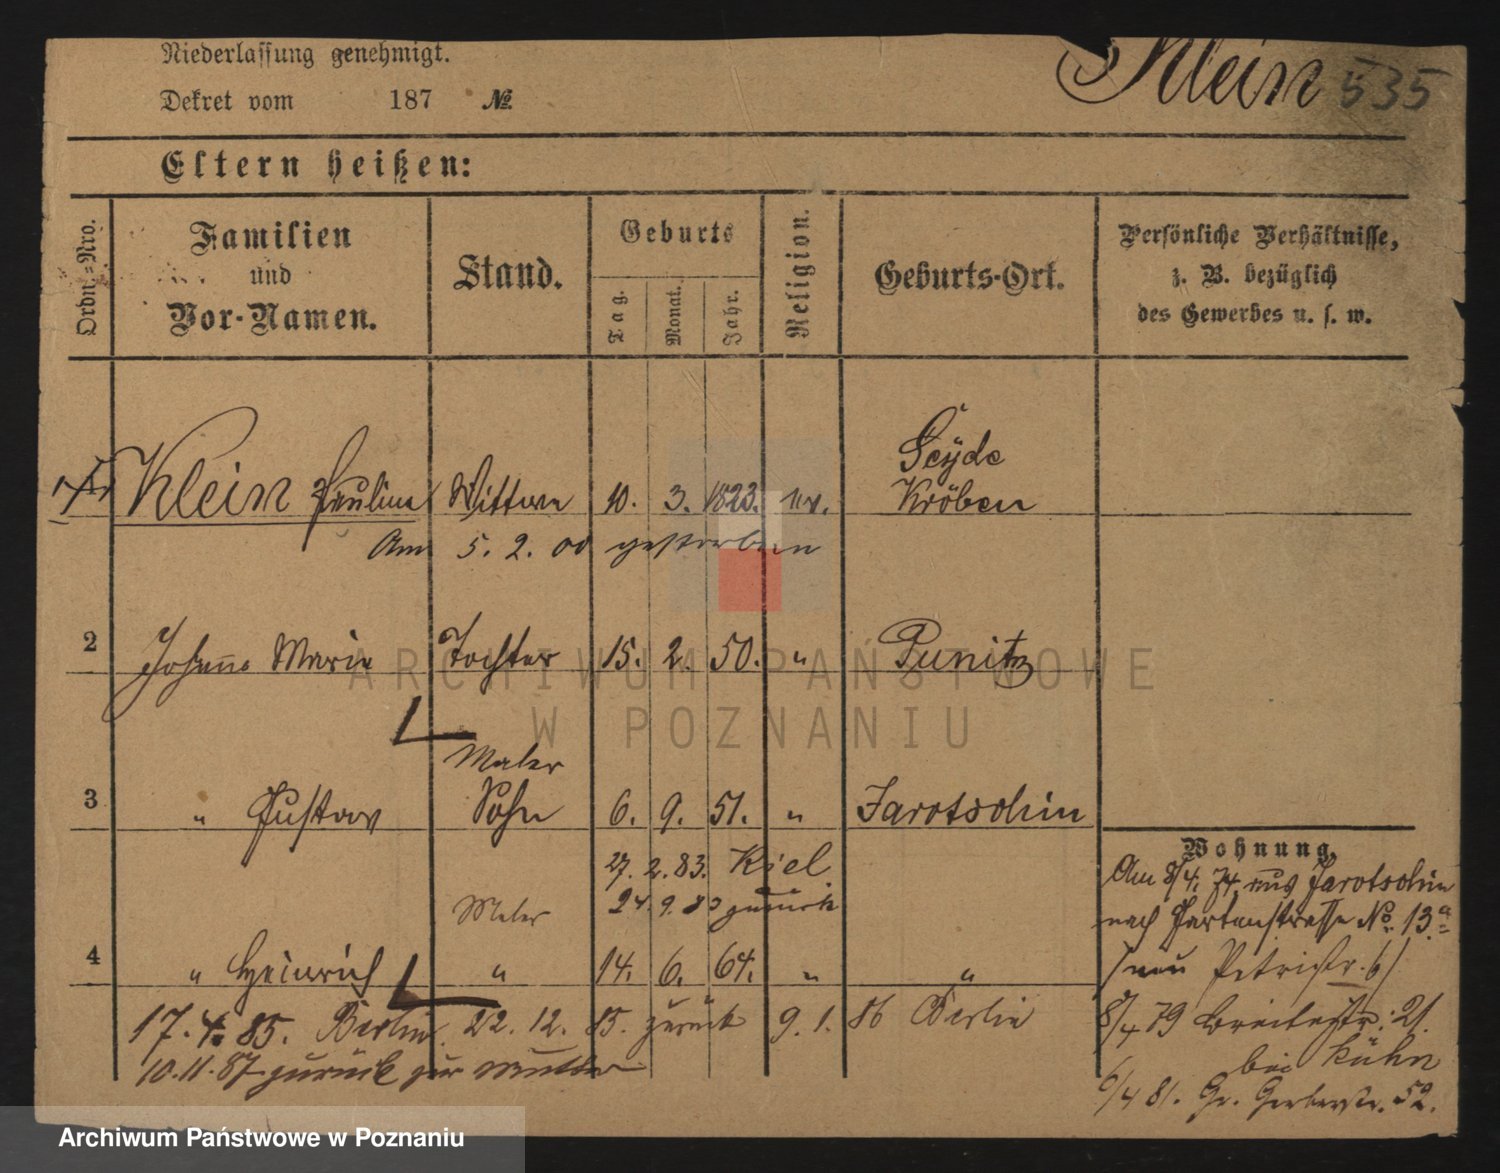 Niederlassung genehmigt.
Klein 535
Dekret vom 187 №
Eltern heißen:
Ordn.=Nro.
Familien und Vor-Namen.
Stand.
Geburts
Tag.
Monat.
Jahr.
Religion.
Geburts-Ort.
Persönliche Verhältnisse,
z. B. bezüglich
des Gewerbes u. s. w.
Seyde
1 Klein Pauline Wittwe 10. 3. 1823. ev. Kröben
Am 5. 2. 00 gestorben
2 Johanne Marie Tochter 15. 2. 50. " Punitz
ARCHIWUM PAŃSTWOWE
W POZNANIU
Maler
3 " Gustav Sohn 6. 9. 51. " Jarotschin
27. 2. 83. Kiel
Maler 24. 9. 83 zurück
4 " Heinrich " 14. 6. 64. " "
17. 4. 85. Berlin 22. 12. 85. zurück 9. 1. 86 Berlin
10. 11. 87 zurück zur Mutter
Wohnung.
Am 8/4. 74. aus Jarotschin
nach Gartenstrasse No. 13a
/neu Petristr. 6/
8/4 79 Breitestr. 21.
bei Kühn
6/4 81. Gr. Gerberstr. 52.
Archiwum Państwowe w Poznaniu